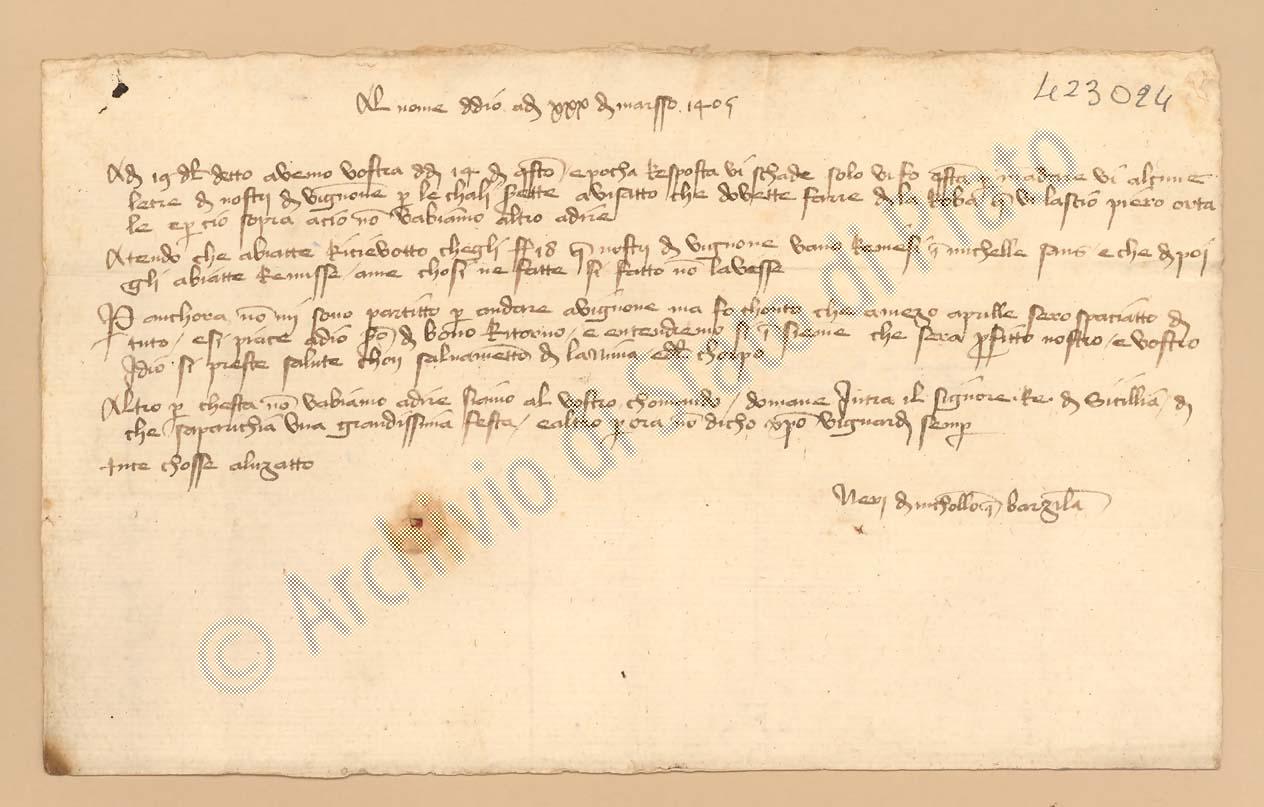 423024
Al nome ddio ad xxx d marsso 1405
Ad 19 del detto avemo vostra dd 14 d qsto e pocha Resposta vi schade solo vi fo qsta p mandarvi alqune
letre d nostri d vignone p le chali sette avisatto che dovette farre d la Roba vi lasciò piero orta
le e p ciò sopra aciò nō vabiamo altro adire
Atendo che abiatte Ricievotto chegli ff 18 q nostri d vignone vano Remesi q michelle sans e che d poi
gli abiatte Remisse ame chosi ne fatte si fatto nō lavesse
P anchora nō mi sono partitto p andare avignione ma fo chonto che amezo aprille sero spaciatto d
tuto / e si piace adio d bono Ritorno / e entendremo si q sieme che sera pfitto nostro / e vostro
Idio si preste salute chon salvametto d lanima e del chorpo
Altro p chesta nō vabiamo adire siamo al vostro chomando / domane Intra il signiore Re d Sicillia / d
che saparichia una grandissima festa / e altro p ora nō dicho xpō viguard semp
Nexi d nichollo q barzilā
© Archivio di Stato di Prato